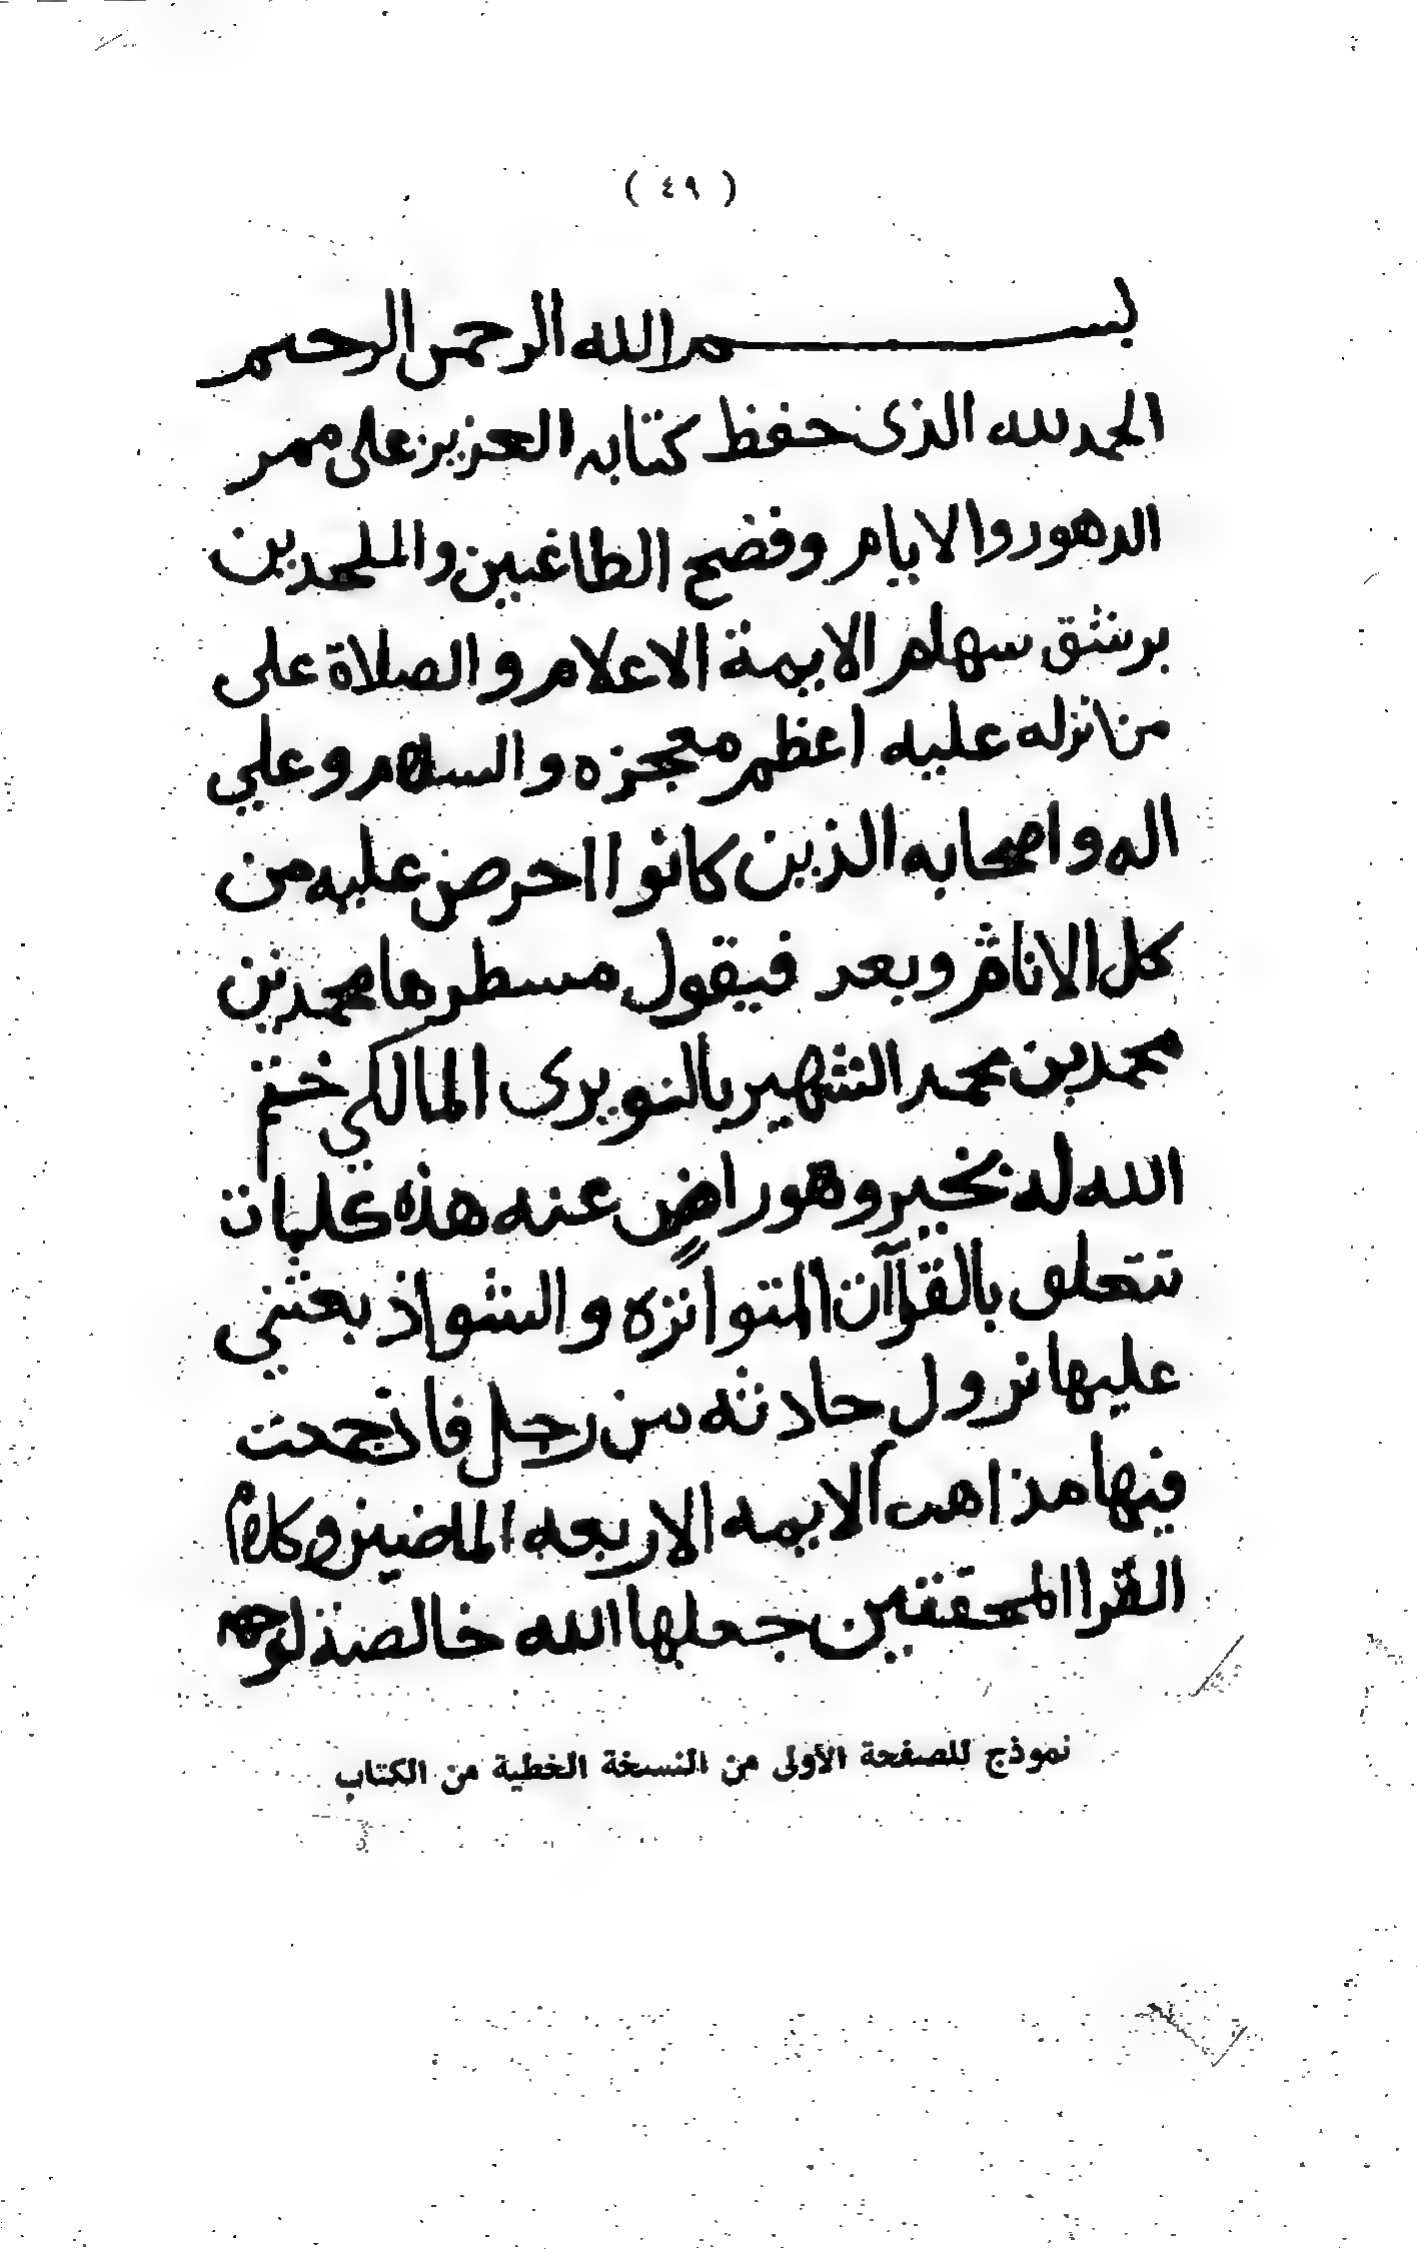 ( ٤٩ )
بسم الله الرحمن الرحيم
الحمد لله الذى حفظ كتابه العزيز على ممر
الدهور والايام وفضح الطاغيين والملحدين
برشق سهام الايمة الاعلام والصلاة على
من انزله عليه اعظم معجزه والسلام وعلي
اله واصحابه الذين كانوا احرص عليه من
كل الانام وبعد فيقول مسطرها محمد بن
محمد بن محمد الشهير بالنويرى المالكي ختم
الله له بخير وهو راضٍ عنه هذه كلمات
تتعلق بالقرآان المتواتره والشواذ بعثني
عليها نزول حادثه من رجل فاذجمعت
فيها مذاهب الايمه الاربعه الماضين وكلام
القرا المحققين جعلها الله خالصة لوجهه
نموذج للصفحة الأولى من النسخة الخطية من الكتاب